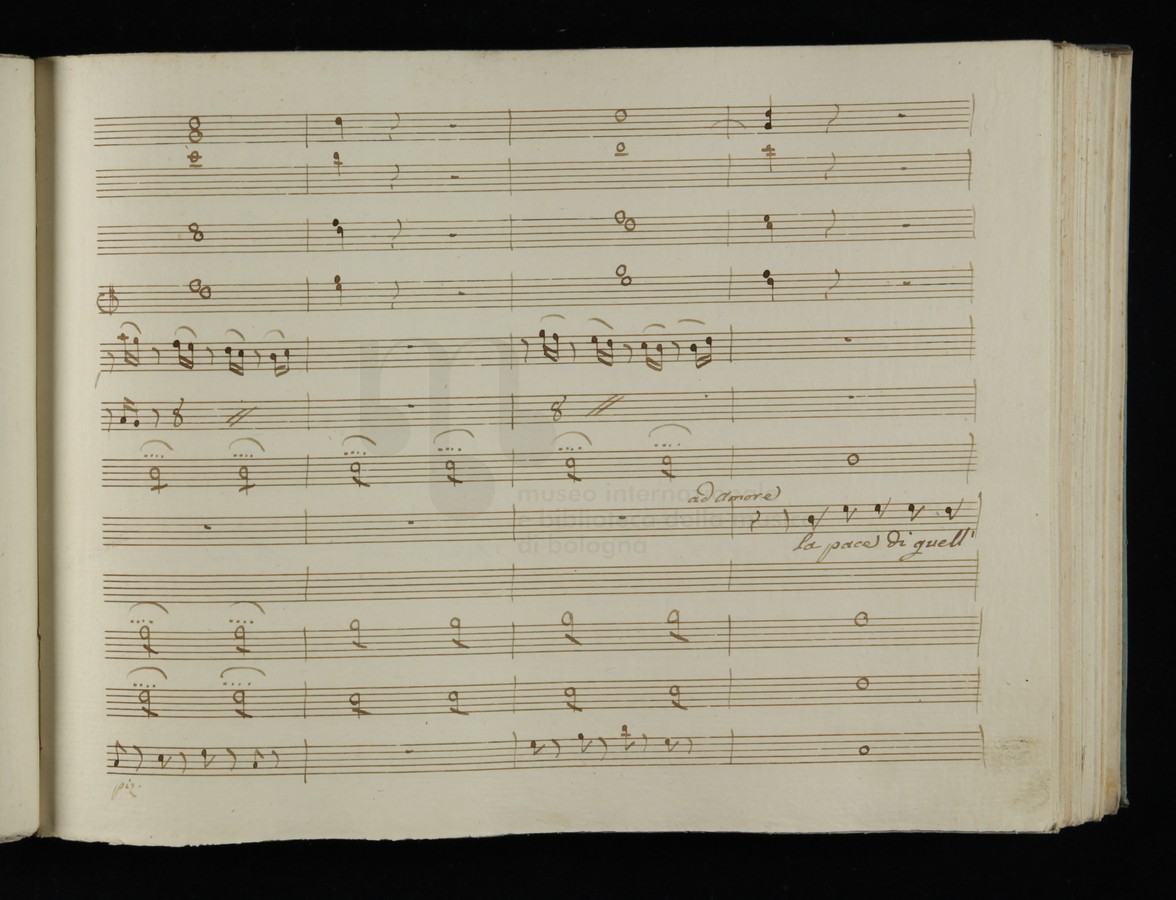 ad amore
museo internazionale
e biblioteca della musica
di bologna
la pace di quell'
piz.